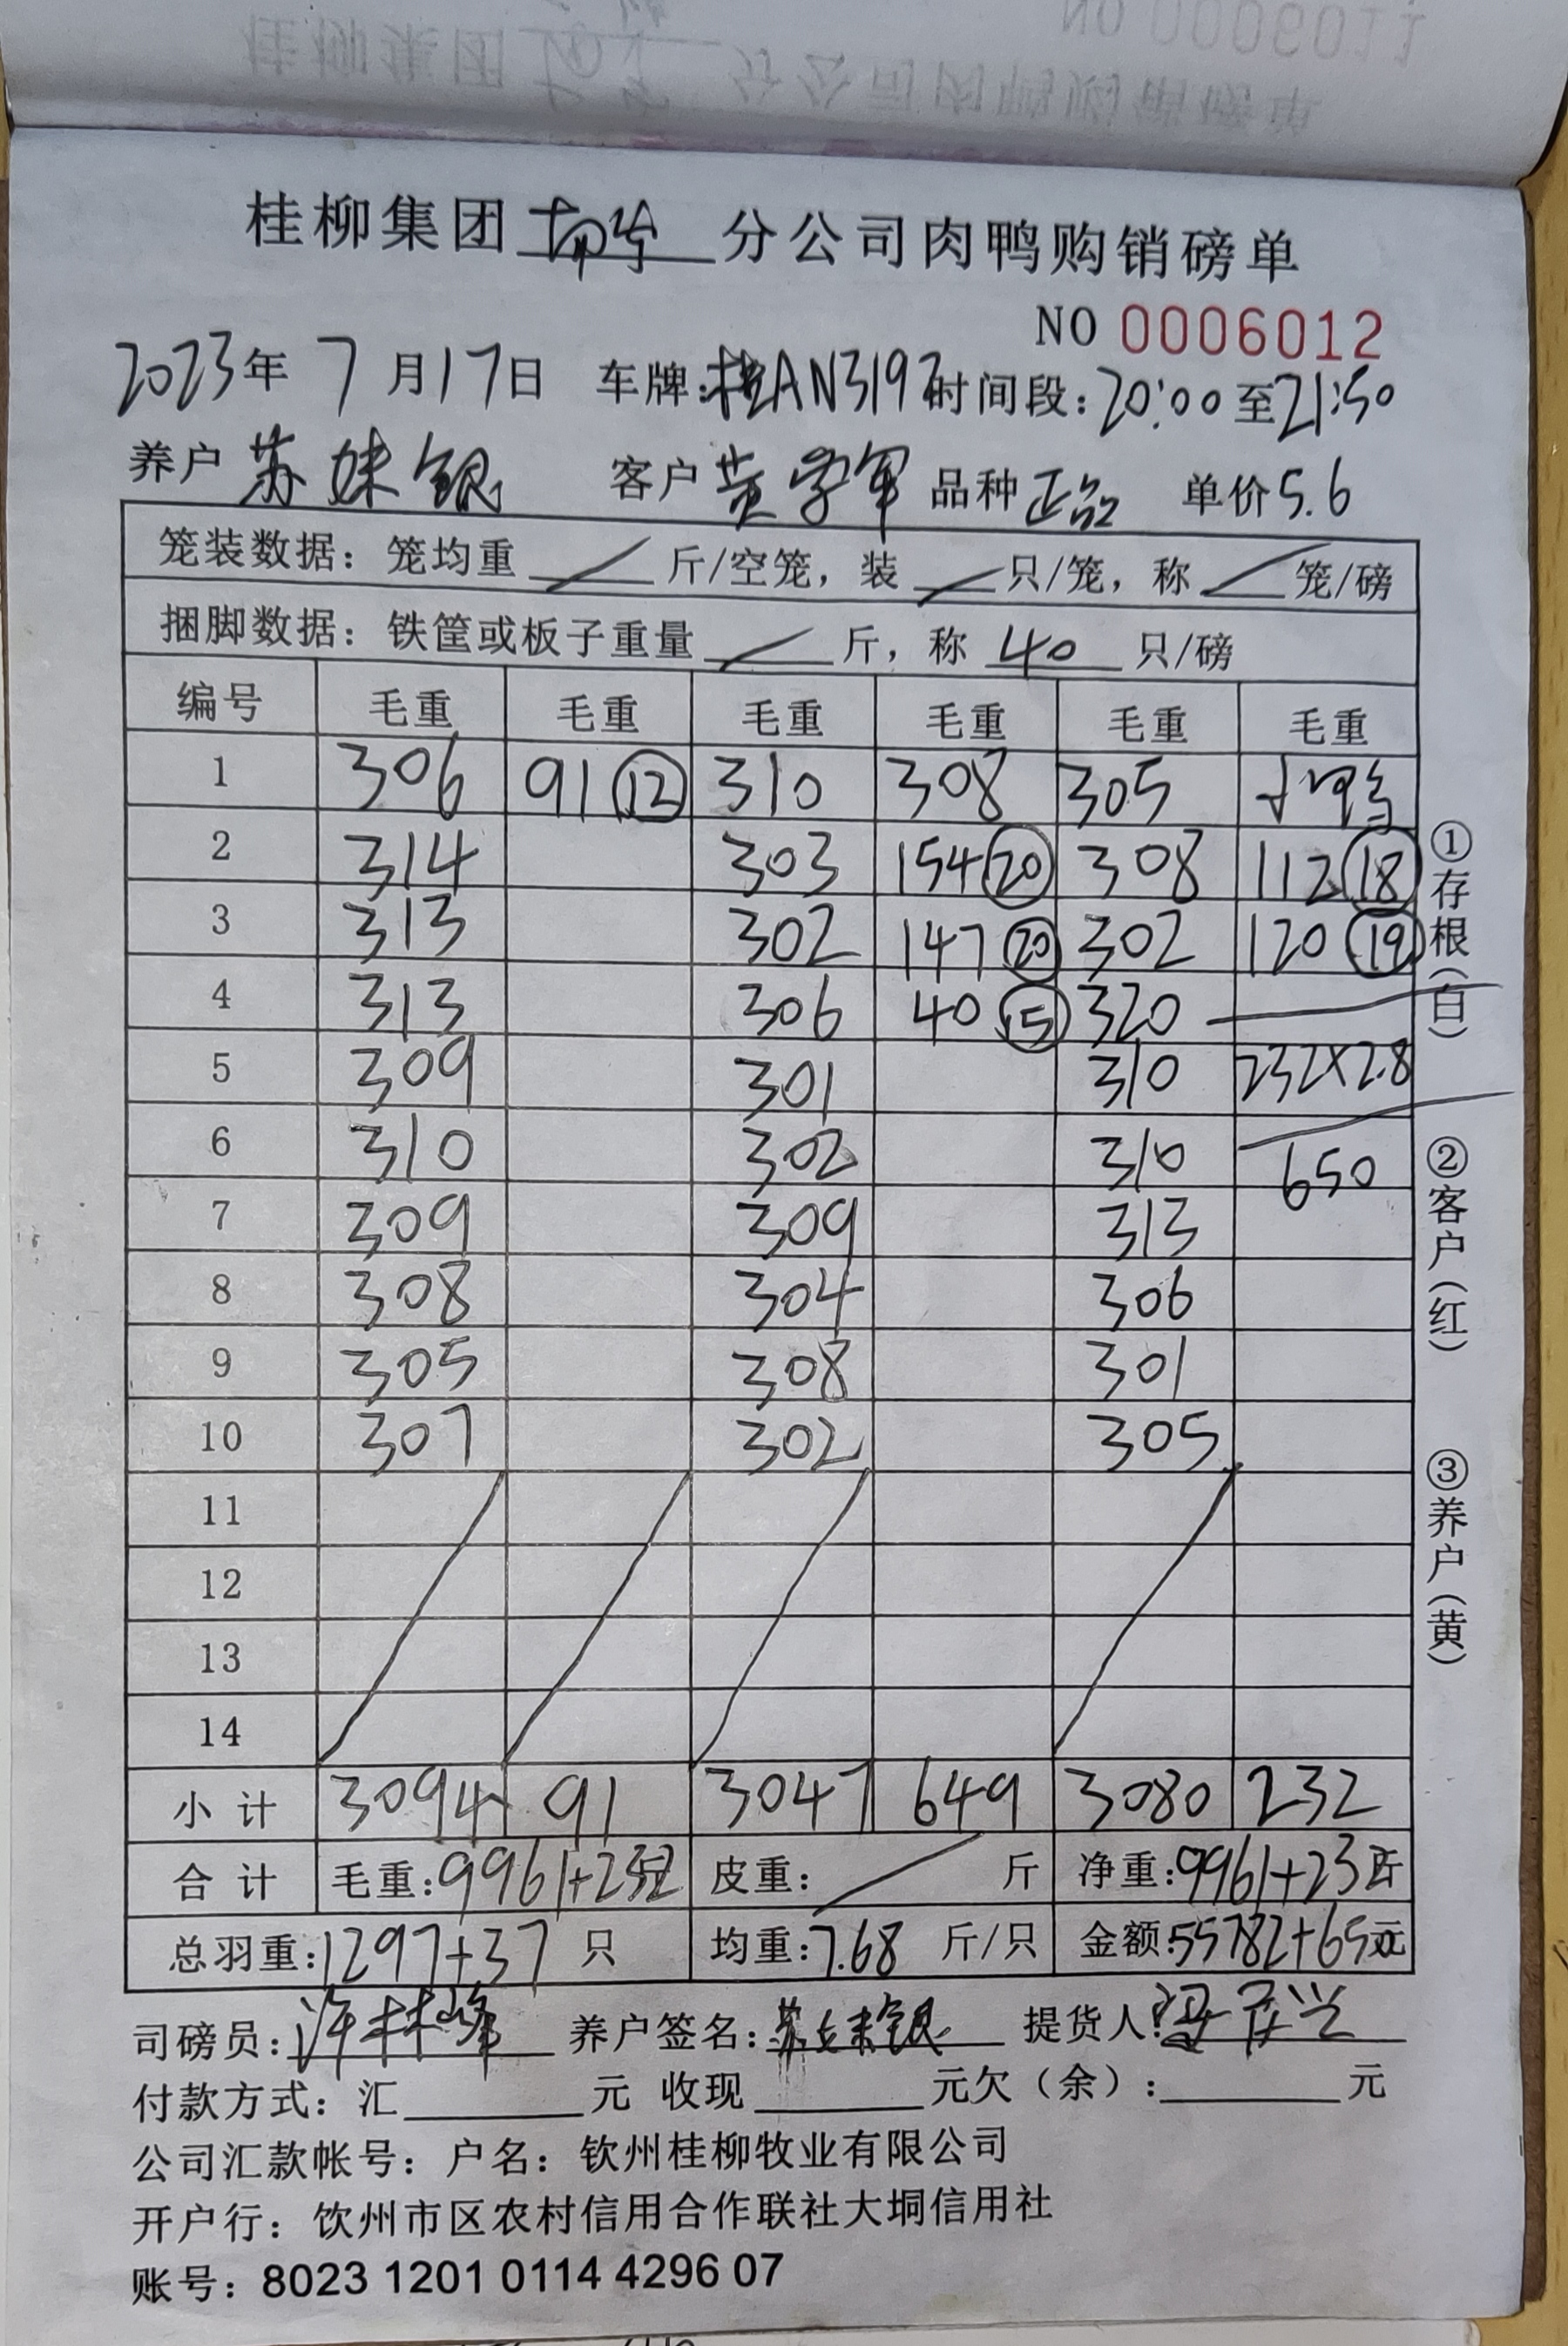 桂柳集团 分公司肉鸭购销磅单
NO 0006012
2023年 7 月17日 车牌:桂AN3197 时间段:20:00至21:50
养户 苏妹银 客户 黄字军 品种 正品 单价5.6
笼装数据: 笼均重 斤/空笼, 装 只/笼, 称 笼/磅
捆脚数据: 铁筐或板子重量 斤, 称 40 只/磅
编号 毛重 毛重 毛重 毛重 毛重 毛重
1 306 91 ⑫ 310 308 305
2 314 303 154 ⑳ 308 112 ⑱
3 313 302 147 ⑳ 302 120 ⑲
4 313 306 40 ⑮ 320
5 309 301 310 232×2.8
6 310 302 310 650
7 309 309 313
8 308 304 306
9 305 308 301
10 307 302 305
11
12
13
14
小计 3094 91 3047 649 3080 232
合计 毛重:9961+232 皮重: 斤 净重:9961+232斤
总羽重:1297+37 只 均重:7.68 斤/只 金额:55782+650元
司磅员:许林峰 养户签名:苏妹银 提货人:
付款方式: 汇 元 收现 元欠(余): 元
公司汇款帐号: 户名: 钦州桂柳牧业有限公司
开户行: 饮州市区农村信用合作联社大垌信用社
账号: 8023 1201 0114 4296 07
①存根(白)
②客户(红)
③养户(黄)